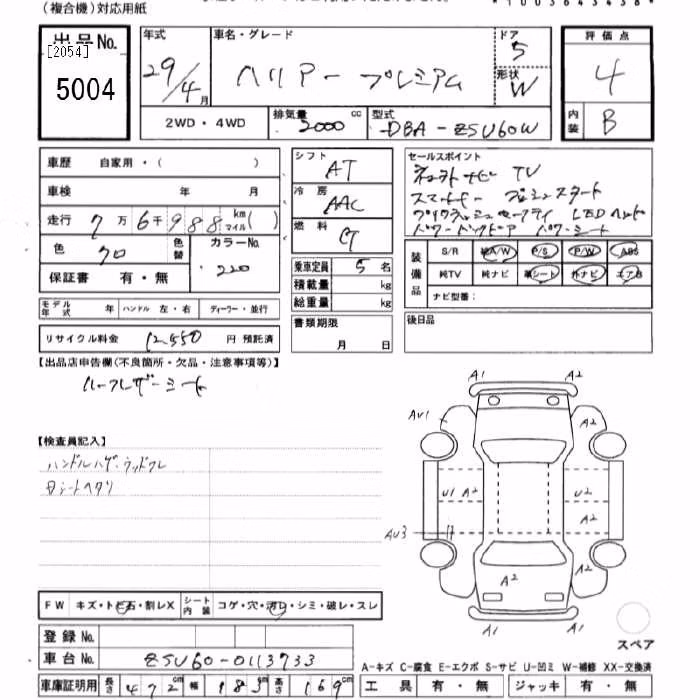 (複合機)対応用紙
*1003643438*
出品No.
[2054]
5004
年式
29/4月
車名・グレード
ハリアー プレミアム
ドア
5
形状
W
評価点
4
内装
B
2WD・4WD
排気量 2000 cc
型式 DBA-ZSU60W
車歴 自家用・( )
車検 年 月
走行 7万6千988 km マイル( )
色 クロ
色替
カラーNo. 220
保証書 有・無
モデル年式 年 ハンドル 左・右 ディーラー・並行
リサイクル料金 12550 円 預託済
シフト AT
冷房 AAC
燃料
乗車定員 5名
積載量 kg
総重量 kg
書類期限
月 日
セールスポイント
TV
スマートキー プッシュスタート
LEDヘッド
パワーバックドア パワーシート
装備品
S/R 純A/W P/S P/W ABS
純TV 純ナビ 革シート 外ナビ エアB
ナビ型番:
後日品
【出品店申告欄(不良箇所・欠品・注意事項等)】
ハーフレザーシート
【検査員記入】
ハンドルハゲ・ウッドスレ
Dシートヘタリ
A1 A2
AU1 A2
U1 A2 U2
A2
AU3
A2 A2
A1 A1
スペア
FW キズ・トビ石・割レX シート内装 コゲ・穴・汚レ・シミ・破レ・スレ
登録No.
車台No. ZSU60-0113733
車庫証明用 長さ 472cm 幅 183cm 高さ 169cm
A-キズ C-腐食 E-エクボ S-サビ U-凹ミ W-補修 XX-交換済
工具 有・無 ジャッキ 有・無